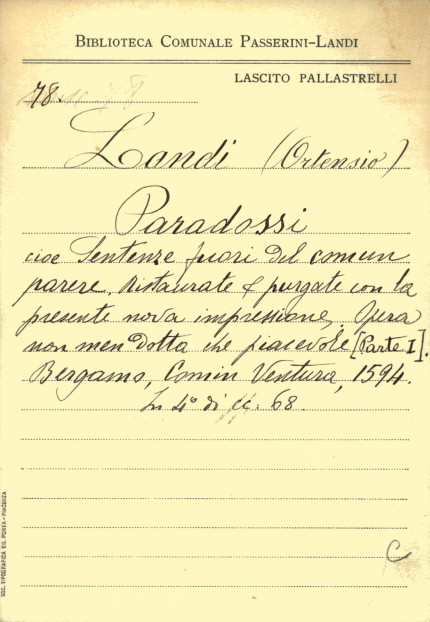 BIBLIOTECA COMUNALE PASSERINI-LANDI
LASCITO PALLASTRELLI
78.
Landi (Ortensio)
Paradossi
cioe Sentenze fuori del comun
parere. Ristaurate & purgate con la
presente nova impressione, Opera
non men dotta che piacevole [Parte I].
Bergamo, Comin Ventura, 1594.
In 4° di cc. 68.
C
SOC. TIPOGRAFICA ED. PORTA - PIACENZA